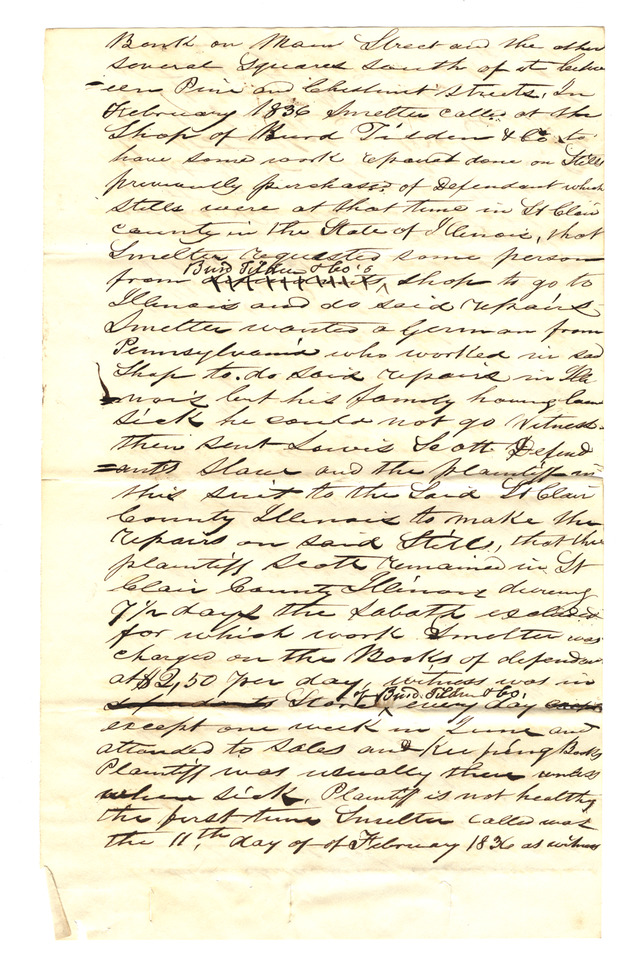 Bank on Main Street and the other
several Squares South of it betwe
=een Pine and Chestnut Streets, In
February 1836 Smelter called at the
Shop of Burd Tilden & Co to
have some work repairs done on Stills
previously purchased of Defendant which
Stills were at that time in St Clair
county in the State of Illinois, that
Smelter requested some person
Burd Tilden & Co's
from shop to go to
Illinois and do said repairs
Smelter wanted a German from
Pennsylvania who worked in said
Shop to do said repairs in Illi
=nois but his family having been
sick he could not go Witness
then sent Lewis Scott Defend
=ants Slave and the plaintiff in
this suit to the said St Clair
County Illinois to make the
repairs on said Stills, that the
plaintiff Scott remained in St
Clair County Illinois during
7½ days the Sabath excluded
for which work Smelter was
charged on the Books of defendant
at $2,50 per day, witness was in
of Burd Tilden & Co.
Store every day
except one week in June and
attended to Sales and Keeping Books
Plaintiff was usually there unless
when sick. Plaintiff is not healthy
the first time Smelter called was
the 11th day of of February 1836 as witness